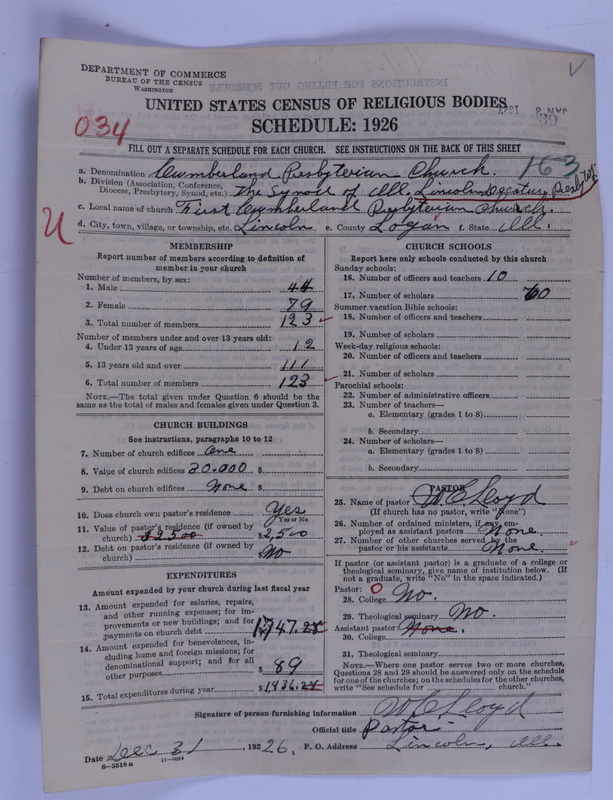 DEPARTMENT OF COMMERCE
BUREAU OF THE CENSUS
WASHINGTON
UNITED STATES CENSUS OF RELIGIOUS BODIES
SCHEDULE: 1926
034
FILL OUT A SEPARATE SCHEDULE FOR EACH CHURCH. SEE INSTRUCTIONS ON THE BACK OF THIS SHEET
163
a. Denomination Cumberland Presbyterian Church.
b. Division (Association, Conference, Diocese, Presbytery, Synod, etc.) The Synod of Ill. Lincoln Decatur Presbytery
c. Local name of church First Cumberland Presbyterian Church.
d. City, town, village, or township, etc. Lincoln e. County Logan f. State Ill.
U
MEMBERSHIP
Report number of members according to definition of
member in your church
Number of members, by sex:
1. Male 44
2. Female 79
3. Total number of members 123
Number of members under and over 13 years old:
4. Under 13 years of age 12
5. 13 years old and over 111
6. Total number of members 123
NOTE.—The total given under Question 6 should be the
same as the total of males and females given under Question 3.
CHURCH BUILDINGS
See instructions, paragraphs 10 to 12
7. Number of church edifices One
8. Value of church edifices 20.000 $
9. Debt on church edifices None $
10. Does church own pastor's residence? Yes
Yes or No
11. Value of pastor's residence (if owned by
church) $2500 $2,500
12. Debt on pastor's residence (if owned by
church) No
EXPENDITURES
Amount expended by your church during last fiscal year
13. Amount expended for salaries, repairs,
and other running expenses; for im-
provements or new buildings; and for
payments on church debt 1,747.28
14. Amount expended for benevolences, in-
cluding home and foreign missions; for
denominational support; and for all
other purposes $ 89
15. Total expenditures during year $1,836.28
CHURCH SCHOOLS
Report here only schools conducted by this church
Sunday schools:
16. Number of officers and teachers 10
17. Number of scholars 60
Summer vacation Bible schools:
18. Number of officers and teachers
19. Number of scholars
Week-day religious schools:
20. Number of officers and teachers
21. Number of scholars
Parochial schools:
22. Number of administrative officers
23. Number of teachers—
a. Elementary (grades 1 to 8)
b. Secondary
24. Number of scholars—
a. Elementary (grades 1 to 8)
b. Secondary
PASTOR
25. Name of pastor W C Lloyd
(If church has no pastor, write "None")
26. Number of ordained ministers, if any, em-
ployed as assistant pastors None.
27. Number of other churches served by the
pastor or his assistants None.
If pastor (or assistant pastor) is a graduate of a college or
theological seminary, give name of institution below. (If
not a graduate, write "No" in the space indicated.)
Pastor: O
28. College No.
29. Theological seminary No.
Assistant pastor: None.
30. College
31. Theological seminary
NOTE.—Where one pastor serves two or more churches,
Questions 28 and 29 should be answered only on the schedule
for one of the churches; on the schedules for the other churches,
write "See schedule for church."
Signature of person furnishing information W C Lloyd
Official title Pastor
Date Dec 31 1926. P. O. Address Lincoln, Ill.
8-5518a 11-9034